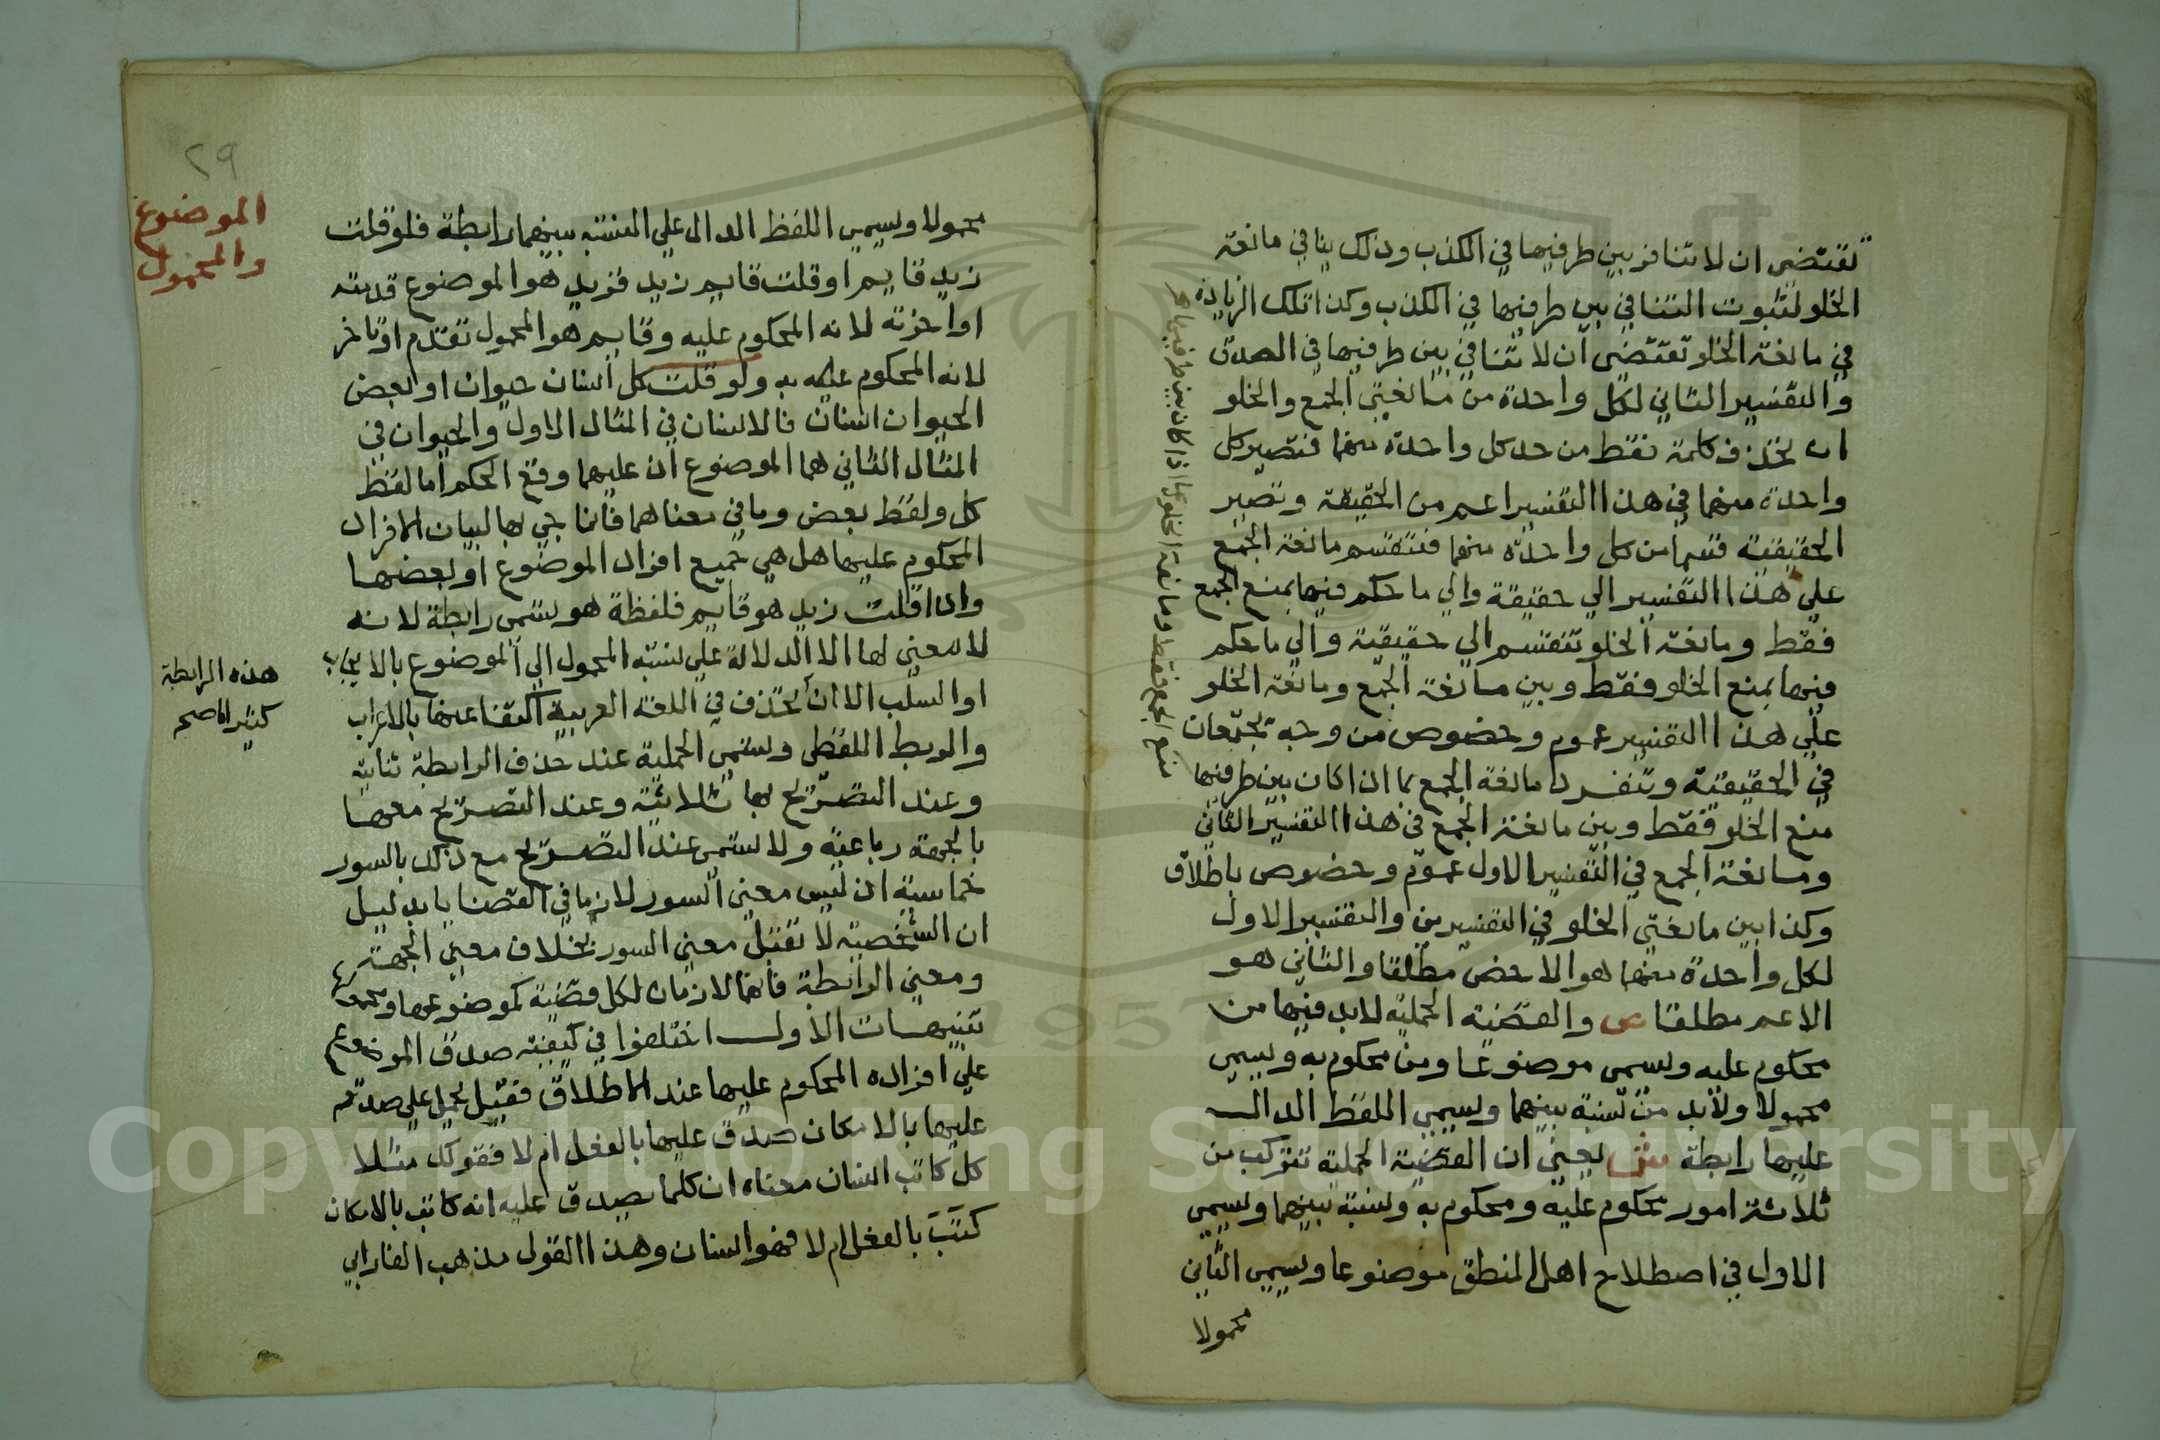 تقتضي ان لا تنافر بين طرفيها في الكذب وذلك ينافي مانعة
الخلو لثبوت التنافي بين طرفيها في الكذب وكذا تلك الزيادة
في مانعة الخلو تقتضي ان لا تنافي بين طرفيها في الصدق
والتفسير الثاني لكل واحدة من مانعتي الجمع والخلو
ان تحذف كلمة فقط من حد كل واحدة منهما فتصير كل
واحدة منهما في هذا التفسير اعم من الحقيقية وتصير
الحقيقية قسما من كل واحدة منهما فتنقسم مانعة الجمع
علي هذا التفسير الي حقيقية والي ما حكم فيها بمنع الجمع
فقط ومانعة الخلو تنقسم الي حقيقية والي ما حكم
فيها بمنع الخلو فقط وبين مانعة الجمع ومانعة الخلو
علي هذا التفسير عموم وخصوص من وجه تجتمعان
في الحقيقية وتنفرد مانعة الجمع بما اذا كان بين طرفيها
منع الخلو فقط وبين مانعة الجمع في هذا التفسير الثاني
ومانعة الجمع في التفسير الاول عموم وخصوص باطلاق
وكذا بين مانعتي الخلو في التفسيرين والتفسير الاول
لكل واحدة منهما هو الاخص مطلقا والثاني هو
الاعم مطلقا ص والقضية الحملية لابد فيها من
محكوم عليه ويسمي موضوعا ومن محكوم به ويسمي
محمولا ولابد من نسبة بينهما ويسمي اللفظ الدال
عليها رابطة ش يعني ان القضية الحملية تتركب من
ثلاثة امور محكوم عليه ومحكوم به ونسبة بينهما ويسمي
الاول في اصطلاح اهل المنطق موضوعا ويسمي الثاني
محمولا
منع الجمع فقط ومانعة الخلو بما اذا كان بين طرفيها
٢٩
الموضوع
والمحمول
محمولا ويسمي اللفظ الدال علي النسبة بينهما رابطة فلو قلت
زيد قايم او قلت قايم زيد فزيد هو الموضوع قدمته
او اخرته لانه المحكوم عليه وقايم هو المحمول تقدم او تاخر
لانه المحكوم عليه به ولو قلت كل انسان حيوان او بعض
الحيوان انسان فالانسان في المثال الاول والحيوان في
المثال الثاني هما الموضوع اذ عليهما وقع الحكم اما لفظ
كل ولفظ بعض وما في معناهما فانما جي بها لبيان الافراد
المحكوم عليها هل هي جميع افراد الموضوع او بعضها
واذا قلت زيد هو قايم فلفظة هو تسمي رابطة لانه
لا معني لها الا الدلالة علي نسبة المحمول الي الموضوع بالايجاب
او السلب الا ان تحذف في اللغة العربية اكتفا عنها بالاعراب
والربط اللفظي وتسمي الحملية عند حذف الرابطة ثنائية
وعند التصريح بها ثلاثية وعند التصريح معها
بالجهة رباعية ولا تسمي عند التصريح مع ذلك بالسور
خماسية اذ ليس معني السور لازما في القضايا بدليل
ان الشخصية لا تقبل معني السور بخلاف معني الجهة
ومعني الرابطة فانهما لازمان لكل قضية كموضوعها ومحمولها
تنبيهات الاول اختلفوا في كيفية صدق الموضوع
علي افراده المحكوم عليها عند الاطلاق فقيل يحمل علي صدقه
عليها بالامكان صدق عليها بالفعل ام لا فقولك مثلا
كل كاتب انسان معناه ان كلما يصدق عليه انه كاتب بالامكان
كتب بالفعل ام لا فهو انسان وهذا القول مذهب الفارابي
هذه الرابطة
Copyright © King Saud University
1957